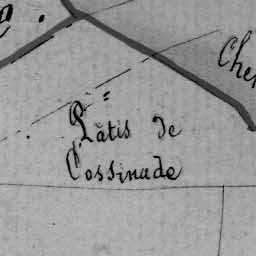 Pâtis de
Cossinade
Che